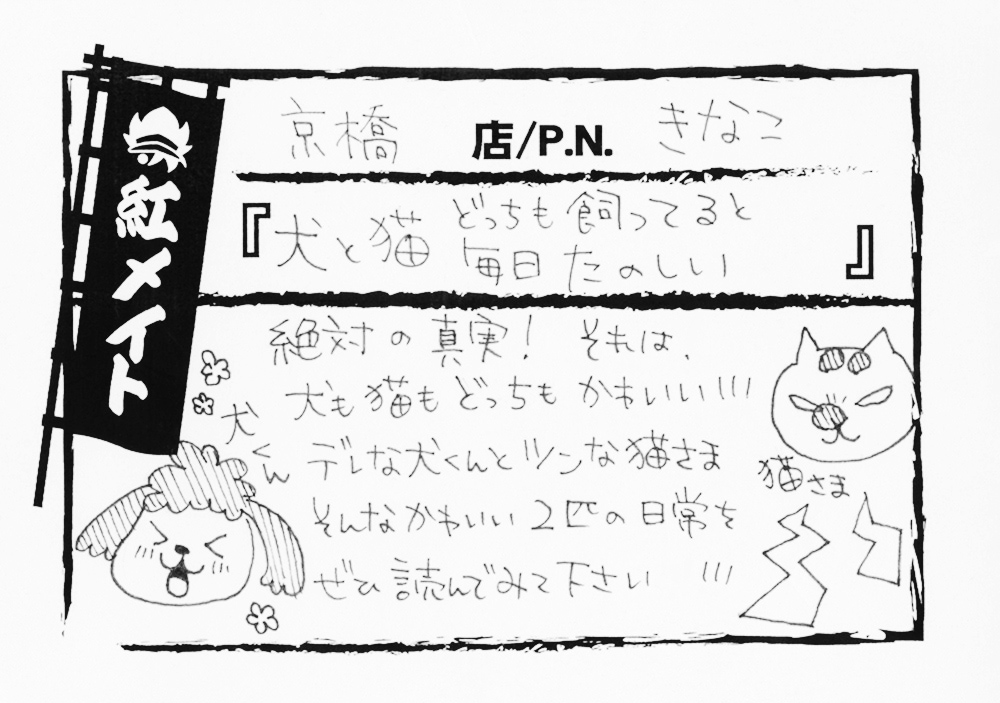 紅メイト
京橋 店/P.N. きなこ
『犬と猫 どっちも飼ってると
毎日たのしい』
絶対の真実! それは、
犬も猫もどっちもかわいい!!!
デレな犬くんとツンな猫さま
そんなかわいい2匹の日常を
ぜひ読んでみて下さい !!!
犬くん
猫さま